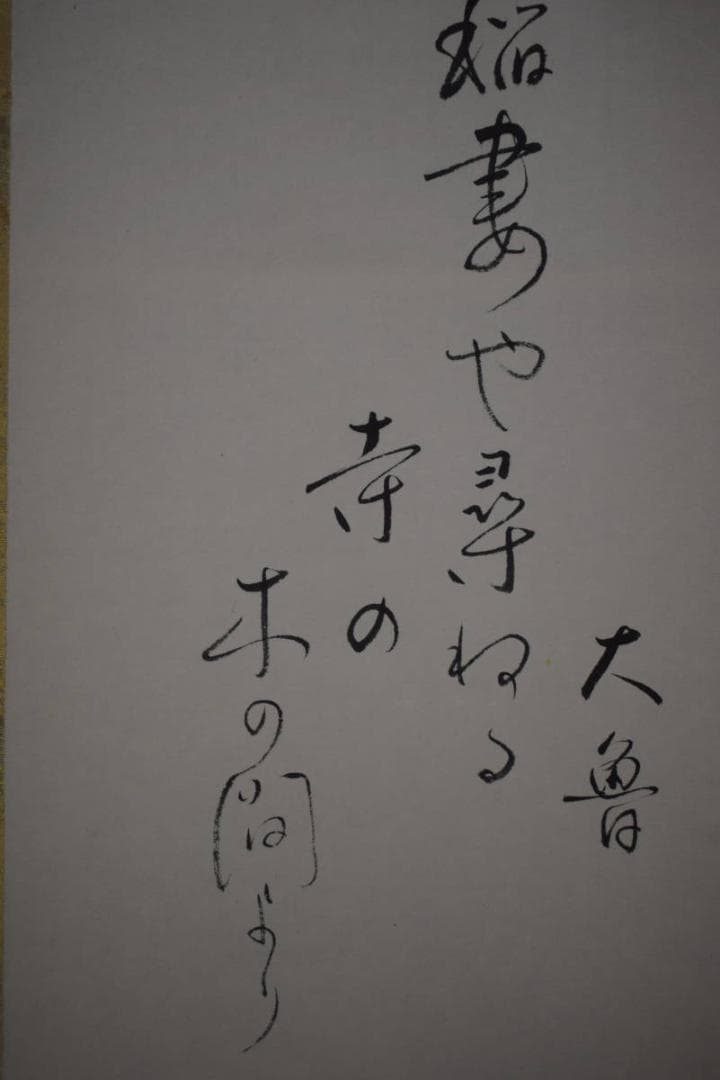 大魯
稲妻や尋ねる
寺の
木の間より